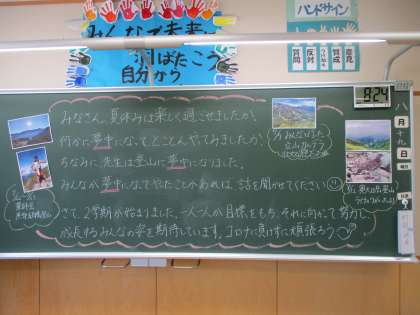 みんなで未来に
羽ばたこう
自分から
ハンドサイン
質問
反対
つけたし
賛成
意見
8:24
八
月
十九
日
曜日
みなさん、夏休みは楽しく過ごせましたか?
何かに夢中になって、とことんやってみましたか?
ちなみに、先生は登山に夢中になりました。
みんなが夢中になってやったことがあれば、話を聞かせてください
さて、2学期が始まりました。一人一人が目標をもち、それに向かって努力し
成長するみんなの姿を期待しています。コロナに負けずに頑張ろう